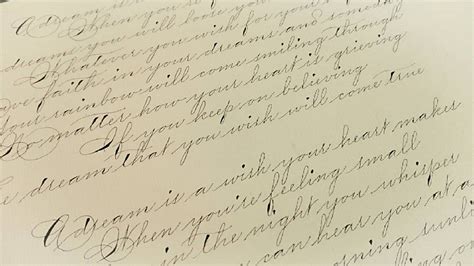 A dream is a wish your
When you're fa
dreams you will loose you
Whatever you wish for you
ve faith in your dreams and someday
our rainbow will come smiling through
No matter how your heart is grieving
If you keep on believing
e dream that you wish will come true
A dream is a wish your heart makes
When you're feeling small
in the night you whisper
can hear you at a
morning sunli